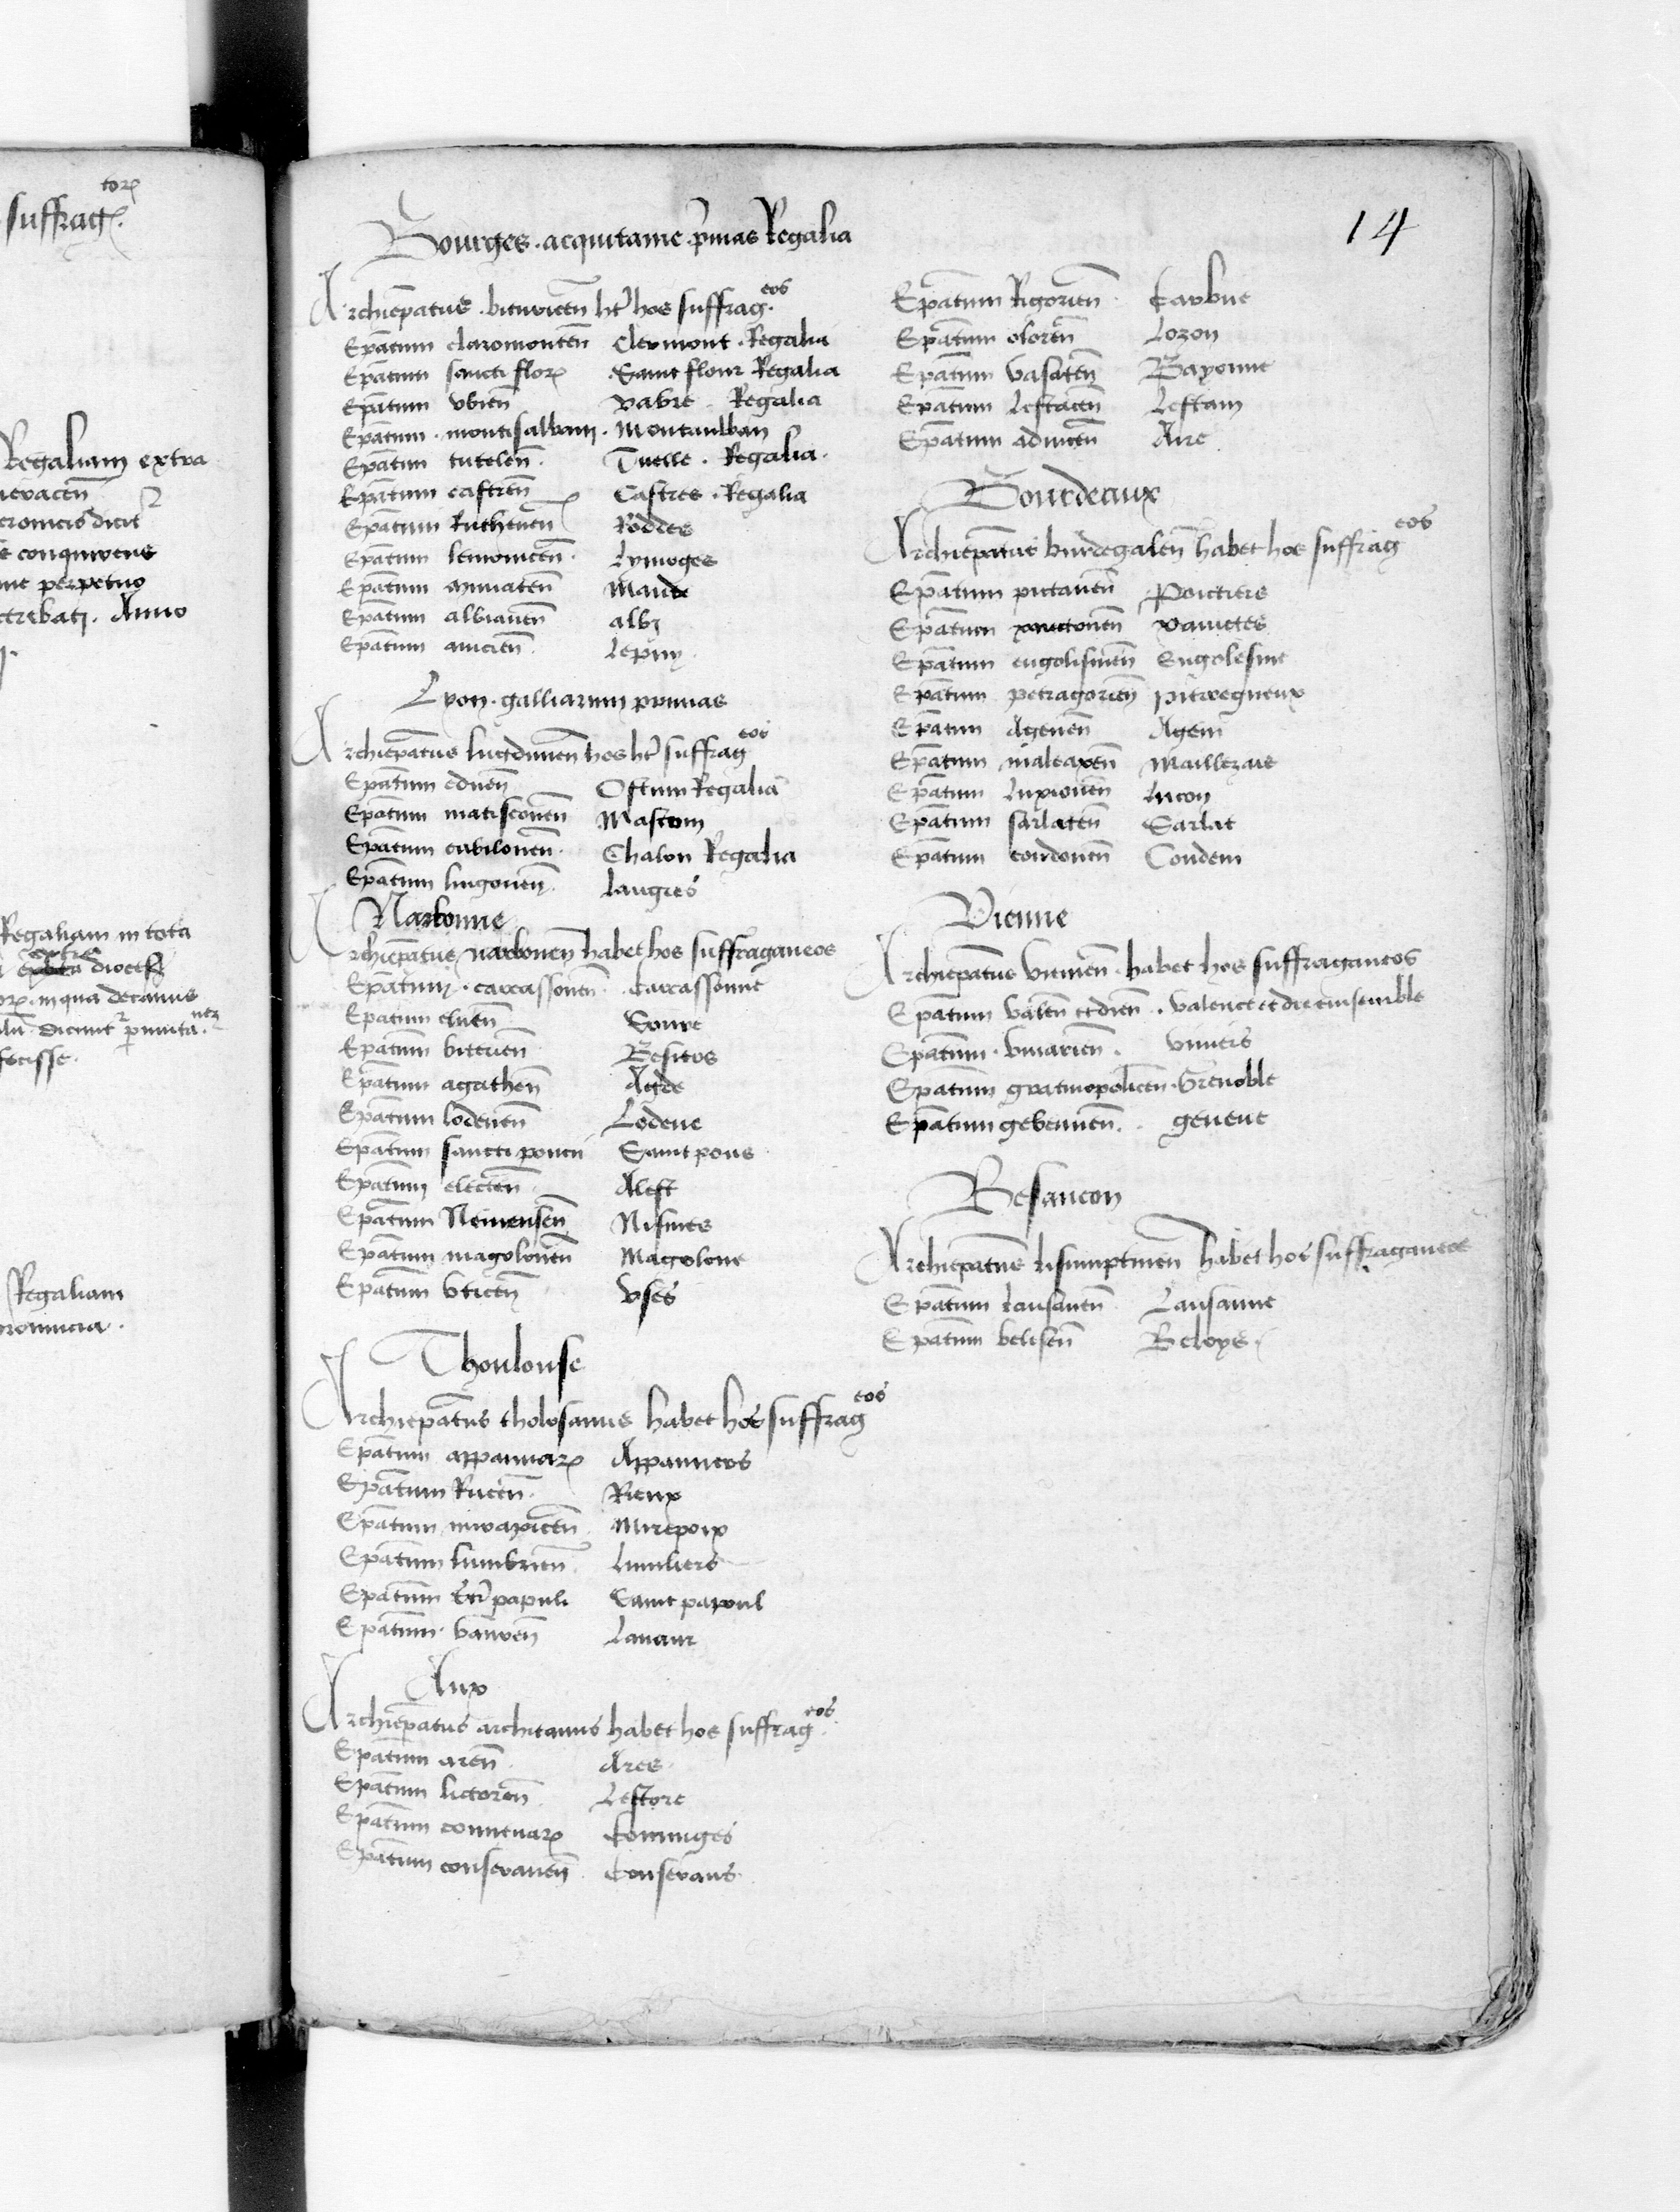 torꝝ
suffragꝭ.
Regaliam extra
conquirens
perpetuo
Anno
Regaliam in tota
extra
in qua decanus
fecisse.
Regaliam
14
Bourges . acquitanie . pͥmas Regalia
Archiepāt9 . bituricen̄ ht̄ hos suffrag.eos
Epātum claromonten̄ Clermont . Regalia
Epātum sancti florꝝ Saint flour Regalia
Epātum vbien̄ vabre . Regalia
Epātum . montisalbani . Montaulban
Epātum tutelen̄ . Tuelle . Regalia .
Epātum castren̄ Castres . Regalia
Epātum Ruthenen̄ Roddes
Epātum lemouicen̄ . Lymoges
Epātum mimaten̄ Mande
Epātum albianen̄ albi
Epātum anicien̄ . Lepuy .
Lyon . galliarum primas
Archiepātus lugdunen̄ hos ht̄ suffrag eos
Epātum eduen̄ Ostum Regalia
Epātum matisconen̄ Mascom
Epātum cabilonen̄ . Chalon Regalia
Epātum lingonen̄ . langres
Narbonne
Archiepātus narbonen̄ habet hos suffraganeos
Epātum . carcassonen̄ . Carcassonne
Epātum eluen̄
Epātum biteren̄ Besiers
Epātum agathen̄ Agde
Epātum lodeuen̄ Lodeue
Epātum sancti poncii Saint pons
Epātum electen̄ . Alest
Epātum Neimensen̄ Nismes
Epātum magolonen̄ Magolone
Epātum vticen̄ vses
Thoulouse
Archiepātus tholosanus habet hos suffrag eos
Epātum appamiarꝝ Appamiers
Epātum Riuen̄ . Rieux
Epātum mirapicen̄ . Mirepoix
Epātum lumbrien̄ . Lumbers
Epātum sct̄i papuli Saint papoul
Epātum . vauren̄ Lauaur
Aux
Archiepātus architanus habet hos suffrag eos.
Epātum aren̄ . Ares .
Epātum lictoren̄ . Lestore
Epātum conuenarꝝ Cominges
Epātum conseranen̄ . Conserans .
Epātum Rigorien̄ . Tarbue
Epātum oloren̄ Lozon
Epātum vasaten̄ Bayonne
Epātum Lestacen̄ Lestam
Epātum aduicen̄ Aire
Bourdeaux
Archiepātus burdegalen̄ habet hos suffrag eos
Epātum pictauen̄ Poictiers
Epātum xanctonen̄ xainctes
Epātum engolismen̄ Engolesme
Epātum petragorien̄ pitregueux
Epātum Agenen̄ Agem
Epātum maleaxen̄ Maillezais
Epātum Luxionen̄ Lucon
Epātum sarlaten̄ Sarlat
Epātum condonen̄ Condem
Vienne
Archiepātus viennen̄ . habet hos suffraganeos
Epātum valen̄ et dien̄ . . valence et die ensemble
Epātum . viuarien̄ . viuiers
Epātum gratinopolicen̄ . Grenoble
Epātum gebennen̄ . . geneue
Besancon
Archiepātus bisumptinen̄ habet hos suffraganeos
Epātum Lausanen̄ Lausanne
Epātum belisen̄ Beloys .